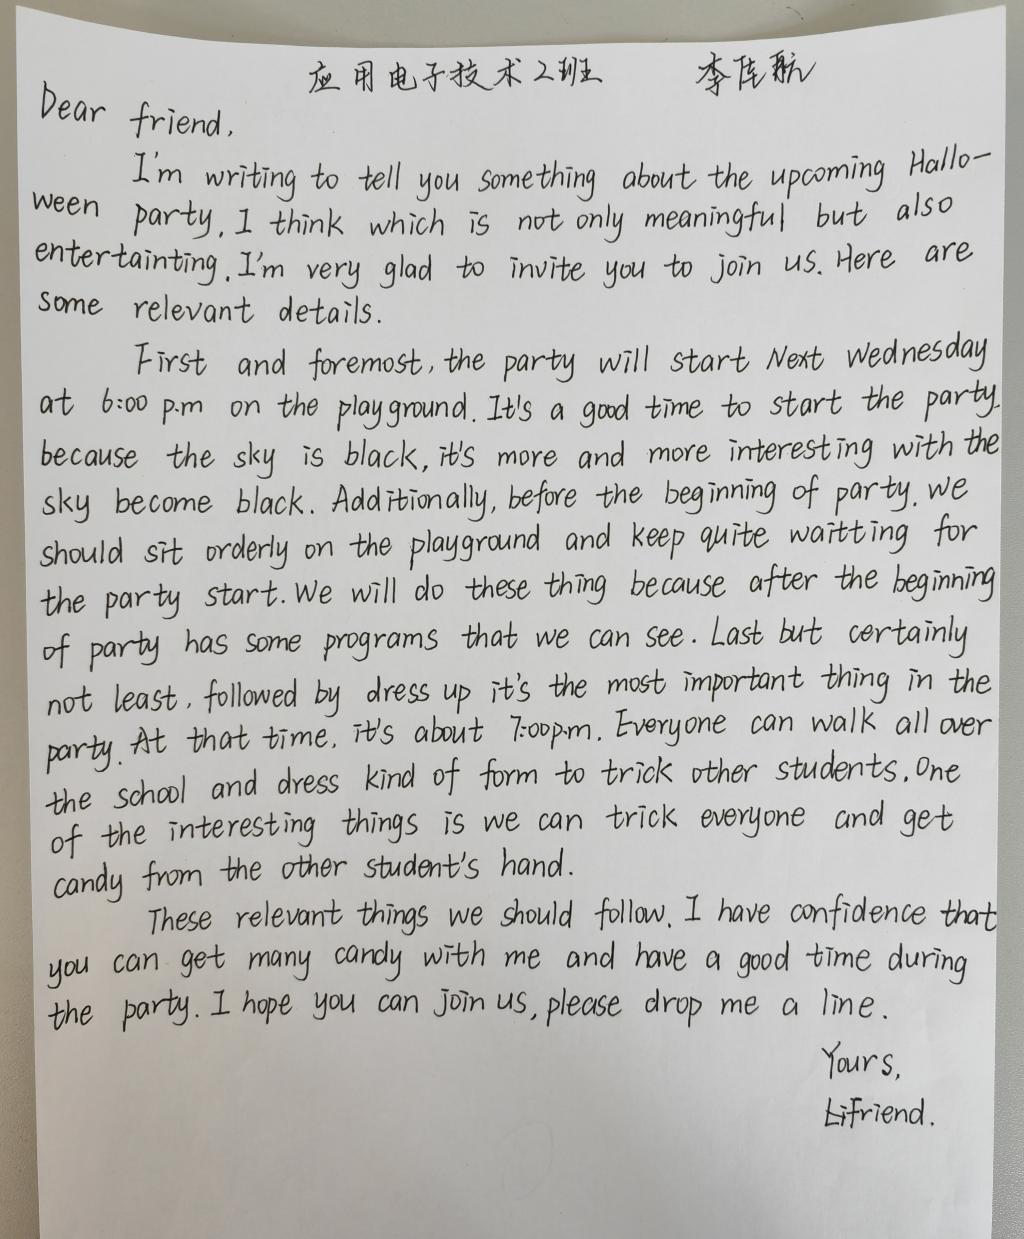 应用电子技术2班 李陈航
Dear friend,
I'm writing to tell you something about the upcoming Hallo-
ween party. I think which is not only meaningful but also
entertainting. I'm very glad to invite you to join us. Here are
some relevant details.
First and foremost, the party will start Next Wednesday
at 6:00 p.m on the playground. It's a good time to start the party.
because the sky is black, it's more and more interesting with the
sky become black. Additionally, before the beginning of party. we
should sit orderly on the playground and keep quite waitting for
the party start. We will do these thing because after the beginning
of party has some programs that we can see. Last but certainly
not least, followed by dress up it's the most important thing in the
party. At that time, it's about 7:00p.m. Everyone can walk all over
the school and dress kind of form to trick other students. One
of the interesting things is we can trick everyone and get
candy from the other student's hand.
These relevant things we should follow. I have confidence that
you can get many candy with me and have a good time during
the party. I hope you can join us, please drop me a line.
Yours,
friend.